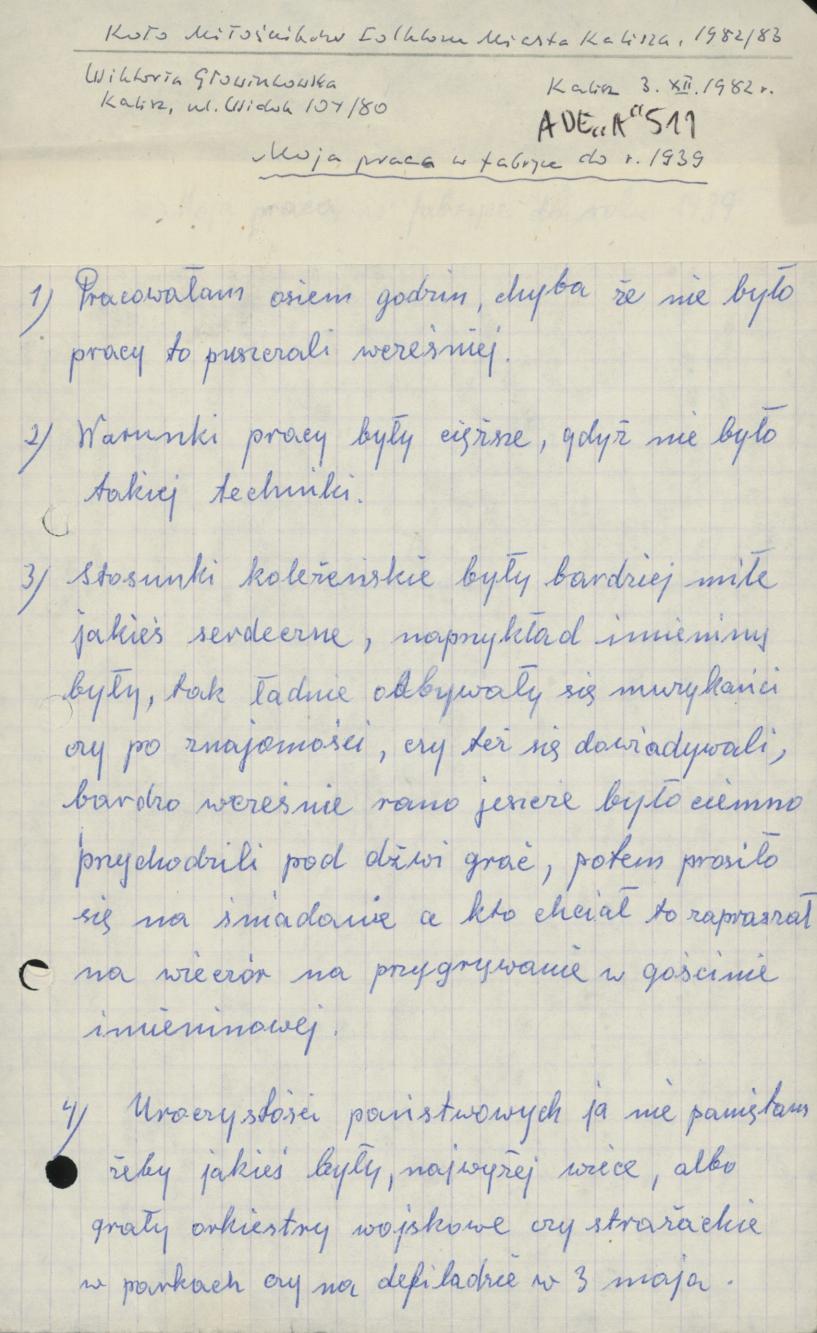 Koło Miłośników Folkloru Miasta Kalisza, 1982/83
Wiktoria Głowinkowska
Kalisz, ul. Widok 107/80
Kalisz 3. XII. 1982 r.
ADE „A" 511
Moja praca w fabryce do r. 1939
Moja praca w fabryce do roku 1939
1) Pracowałam osiem godzin, chyba że nie było
pracy to puszczali wcześniej.
2) Warunki pracy były cięższe, gdyż nie było
takiej techniki.
3) Stosunki koleżeńskie były bardziej miłe
jakieś serdeczne, naprzykład imieniny
były, tak ładnie odbywały się muzykańci
czy po znajomości, czy też się dowiadywali,
bardzo wcześnie rano jeszcze było ciemno
przychodzili pod dźwi grać, potem prosiło
się na śniadanie a kto chciał to zapraszał
na wieczór na przygrywanie w gościnie
imieninowej.
4) Uroczystości państwowych ja nie pamiętam
żeby jakieś były, najwyżej wiece, albo
grały orkiestry wojskowe czy strażackie
w parkach czy na defiladzie w 3 maja.